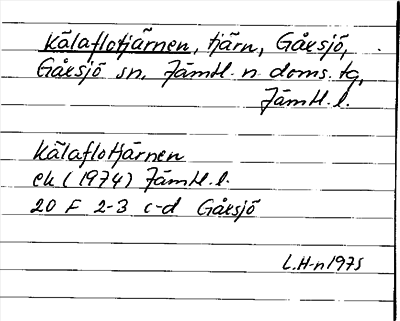 Kälaflotjärnen, tjärn, Gåxsjö,
Gåxsjö sn. Jämtl. n. doms. tg,
Jämtl. l.
Kälaflotjärnen
ek (1974) Jämtl. l.
20 F 2-3 c-d Gåxsjö
L.H-n 1975